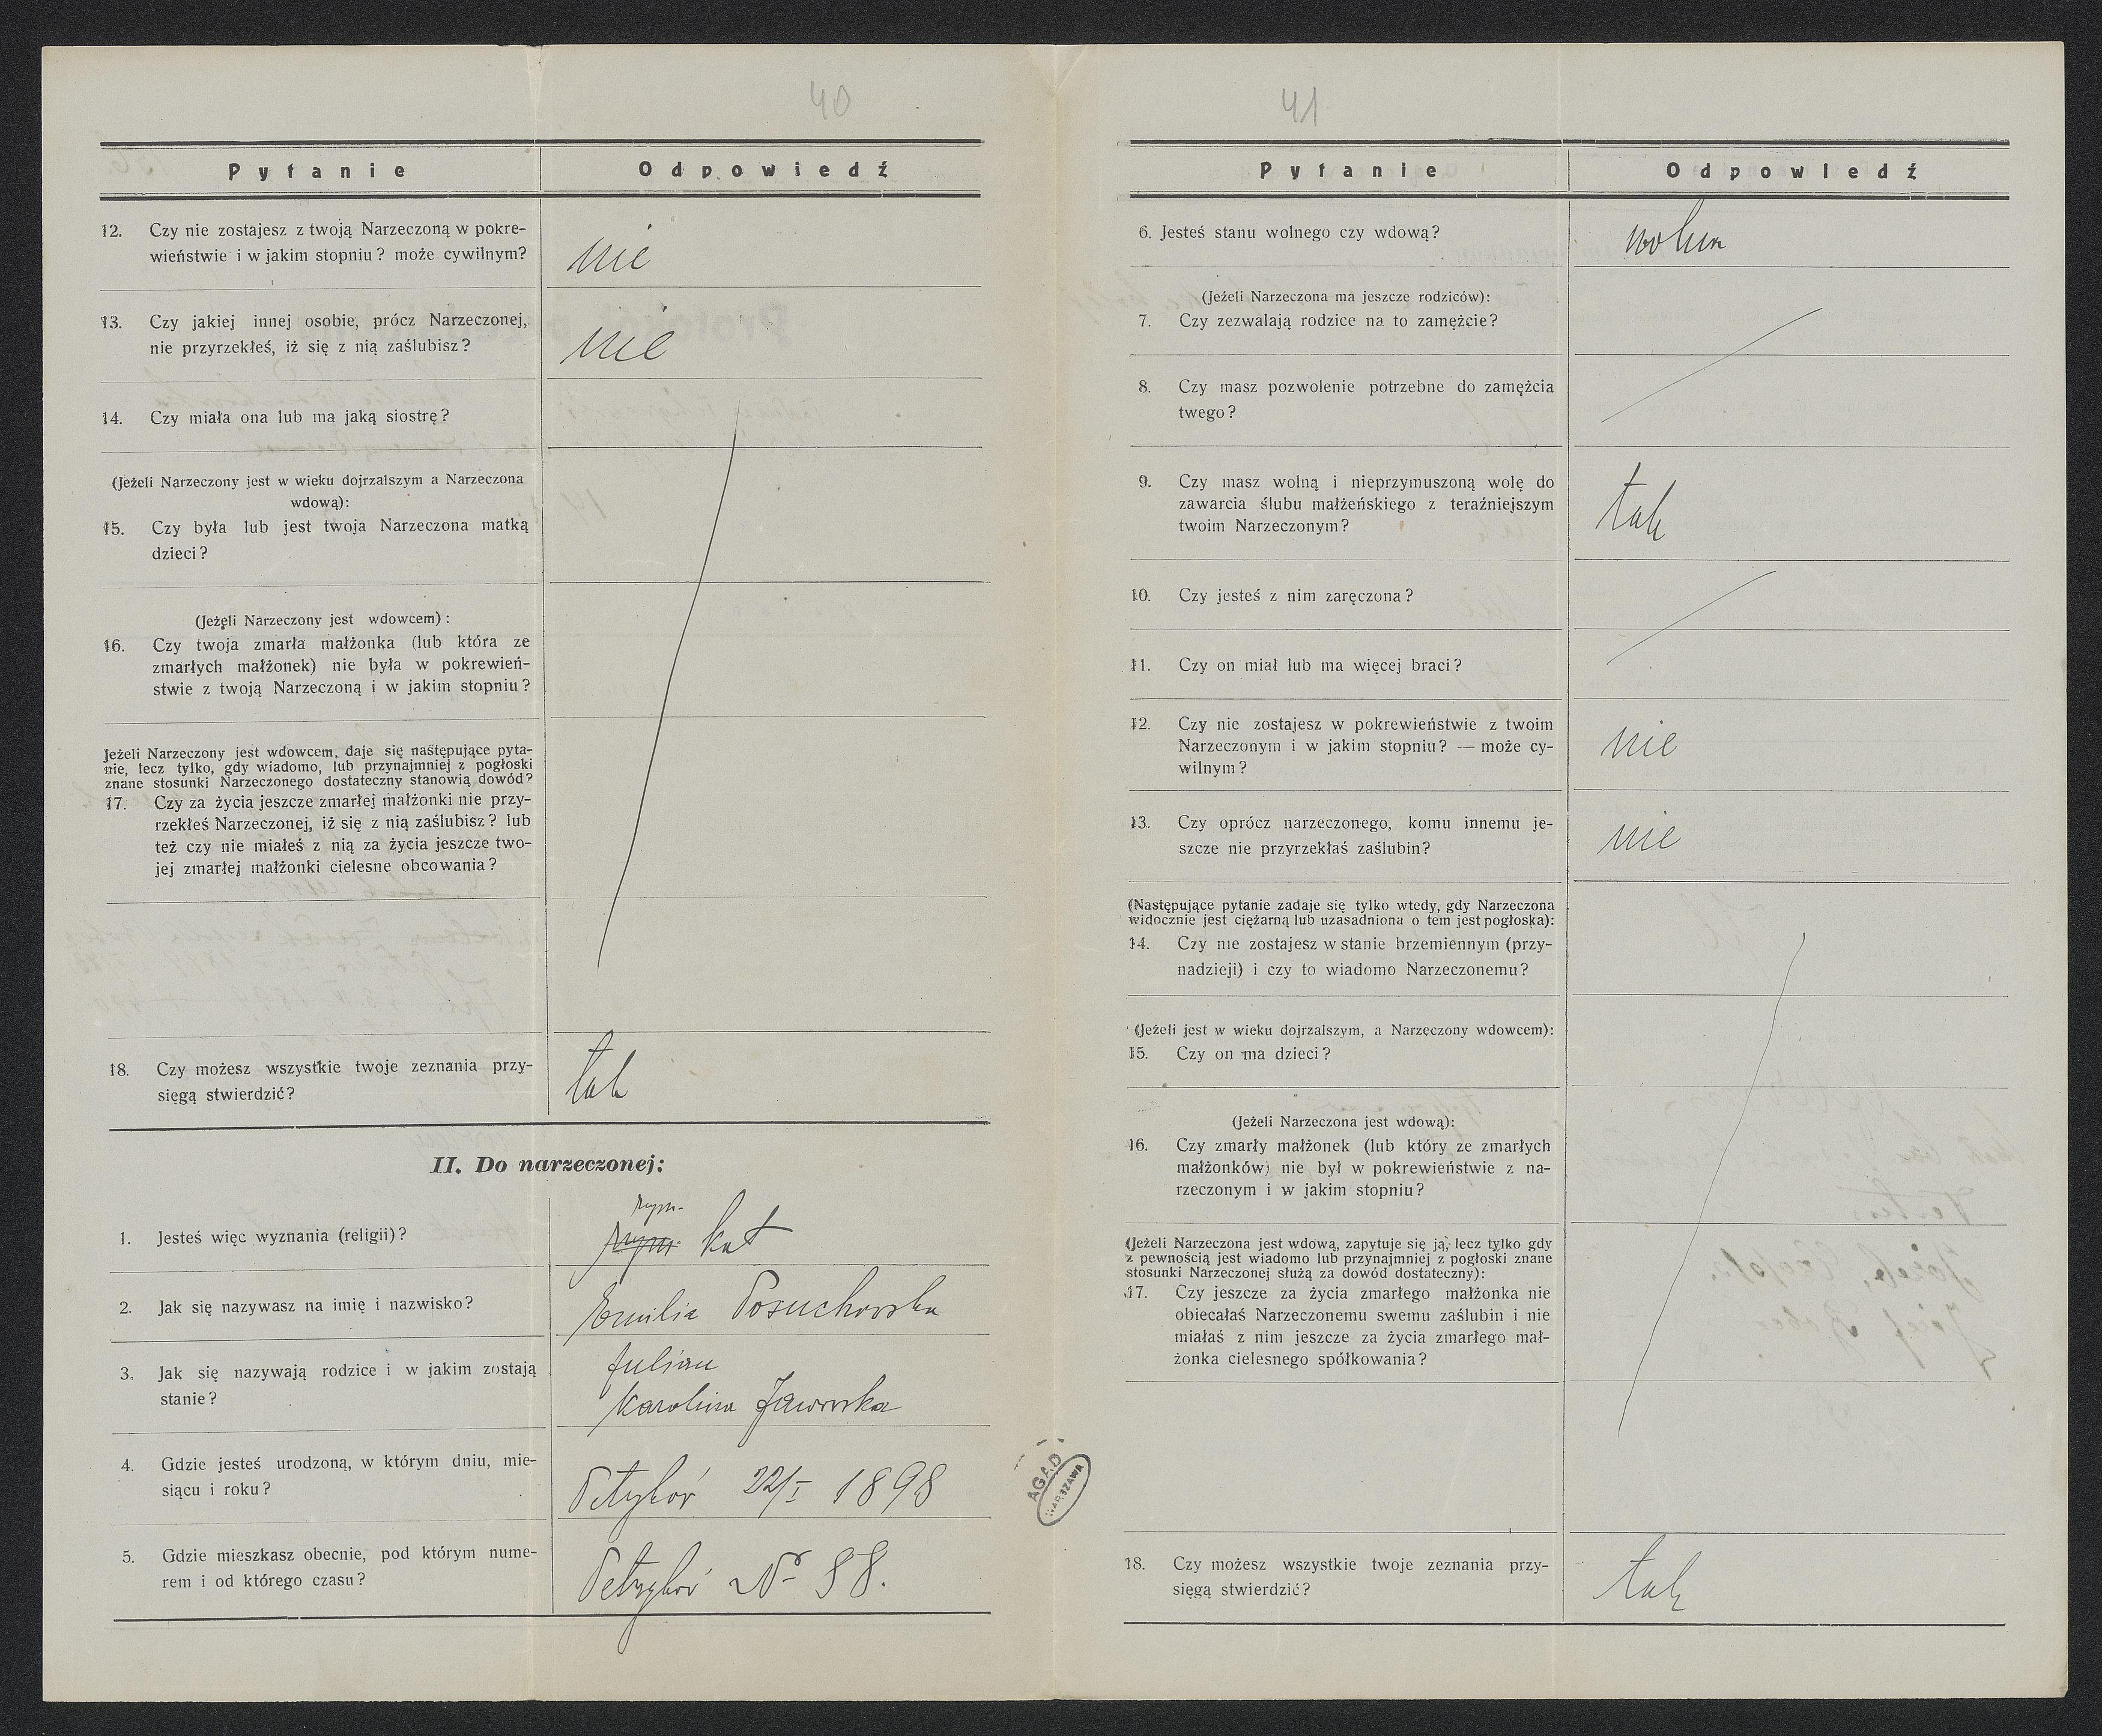 40
Pytanie Odpowiedź
12. Czy nie zostajesz z twoją Narzeczoną w pokre-
wieństwie i w jakim stopniu? może cywilnym?
nie
13. Czy jakiej innej osobie, prócz Narzeczonej,
nie przyrzekłeś, iż się z nią zaślubisz?
nie
14. Czy miała ona lub ma jaką siostrę?
(Jeżeli Narzeczony jest w wieku dojrzalszym a Narzeczona
wdową):
15. Czy była lub jest twoja Narzeczona matką
dzieci?
(Jeżeli Narzeczony jest wdowcem):
16. Czy twoja zmarła małżonka (lub która ze
zmarłych małżonek) nie była w pokrewień-
stwie z twoją Narzeczoną i w jakim stopniu?
Jeżeli Narzeczony jest wdowcem, daje się następujące pyta-
nie, lecz tylko, gdy wiadomo, lub przynajmniej z pogłoski
znane stosunki Narzeczonego dostateczny stanowią dowód?
17. Czy za życia jeszcze zmarłej małżonki nie przy-
rzekłeś Narzeczonej, iż się z nią zaślubisz? lub
też czy nie miałeś z nią za życia jeszcze two-
jej zmarłej małżonki cielesne obcowania?
18. Czy możesz wszystkie twoje zeznania przy-
sięgą stwierdzić?
tak
II. Do narzeczonej:
1. Jesteś więc wyznania (religii)?
rzym.
rzym. kat
2. Jak się nazywasz na imię i nazwisko?
Emilia Posuchowska
3. Jak się nazywają rodzice i w jakim zostają
stanie?
Julian
Karolina Jaworska
4. Gdzie jesteś urodzoną, w którym dniu, mie-
siącu i roku?
22/I 1898
5. Gdzie mieszkasz obecnie, pod którym nume-
rem i od którego czasu?
Nr 88.
AGAD
WARSZAWA
41
Pytanie Odpowiedź
6. Jesteś stanu wolnego czy wdową?
wolna
(Jeżeli Narzeczona ma jeszcze rodziców):
7. Czy zezwalają rodzice na to zamężcie?
8. Czy masz pozwolenie potrzebne do zamężcia
twego?
9. Czy masz wolną i nieprzymuszoną wolę do
zawarcia ślubu małżeńskiego z teraźniejszym
twoim Narzeczonym?
tak
10. Czy jesteś z nim zaręczona?
11. Czy on miał lub ma więcej braci?
12. Czy nie zostajesz w pokrewieństwie z twoim
Narzeczonym i w jakim stopniu? — może cy-
wilnym?
nie
13. Czy oprócz narzeczonego, komu innemu je-
szcze nie przyrzekłaś zaślubin?
nie
(Następujące pytanie zadaje się tylko wtedy, gdy Narzeczona
widocznie jest ciężarną lub uzasadniona o tem jest pogłoska):
14. Czy nie zostajesz w stanie brzemiennym (przy-
nadzieji) i czy to wiadomo Narzeczonemu?
(Jeżeli jest w wieku dojrzalszym, a Narzeczony wdowcem):
15. Czy on ma dzieci?
(Jeżeli Narzeczona jest wdową):
16. Czy zmarły małżonek (lub który ze zmarłych
małżonków) nie był w pokrewieństwie z na-
rzeczonym i w jakim stopniu?
(Jeżeli Narzeczona jest wdową, zapytuje się ją, lecz tylko gdy
z pewnością jest wiadomo lub przynajmniej z pogłoski znane
stosunki Narzeczonej służą za dowód dostateczny):
17. Czy jeszcze za życia zmarłego małżonka nie
obiecałaś Narzeczonemu swemu zaślubin i nie
miałaś z nim jeszcze za życia zmarłego mał-
żonka cielesnego spółkowania?
18. Czy możesz wszystkie twoje zeznania przy-
sięgą stwierdzić?
tak